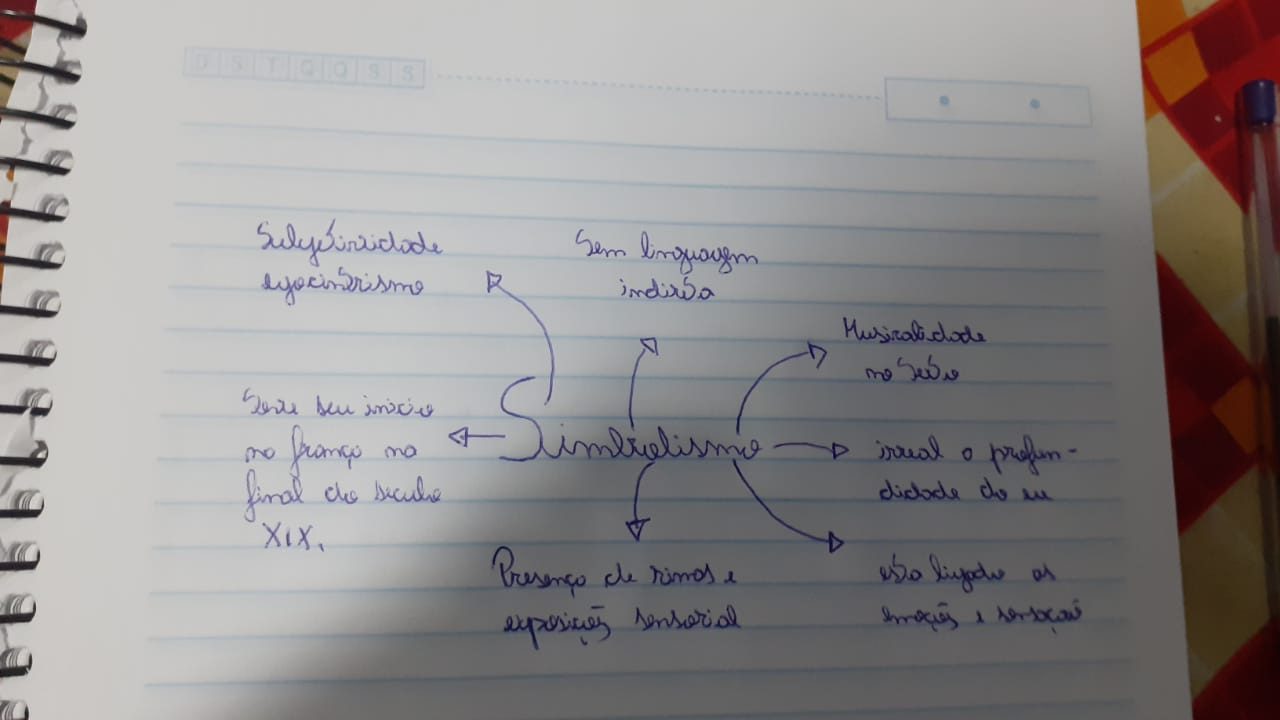 D S T Q Q S S
Subjetividade
egocintrismo
Sem linguagem
indireta
Musicalidade
no texto
Simbolismo
Teve seu inicio
na frança no
final do seculo
XIX.
irreal a profun-
didade do eu
Presença de rimas e
exposições sensorial
esta ligado as
emoções e sensaçoẽ